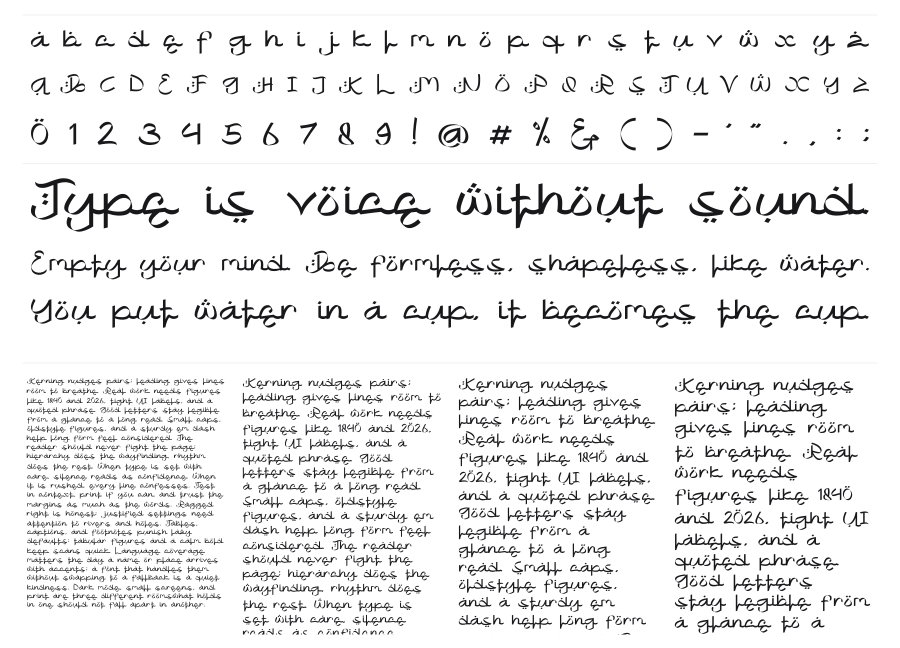 a b c d e f g h i j k l m n o p q r s t u v w x y z
A B C D E F G H I J K L M N O P Q R S T U V W X Y Z
0 1 2 3 4 5 6 7 8 9 ! @ # % & ( ) - ' " . , : ;
Type is voice without sound.
Empty your mind. Be formless, shapeless, like water.
You put water in a cup, it becomes the cup.
Kerning nudges pairs; leading gives lines
room to breathe. Real work needs figures
like 1840 and 2026, tight UI labels, and a
quoted phrase. Good letters stay legible
from a glance to a long read. Small caps,
oldstyle figures, and a sturdy em dash
help long form feel considered. The
reader should never fight the page;
hierarchy does the wayfinding, rhythm
does the rest. When type is set with
care, silence reads as confidence. When
it is rushed, every line confesses. Test
in context, print if you can, and trust the
margins as much as the words. Ragged
right is honest; justified settings need
attention to rivers and holes. Tables,
captions, and footnotes punish lazy
defaults; tabular figures and a calm bold
keep scans quick. Language coverage
matters the day a name or place arrives
with accents; a font that handles them
without swapping to a fallback is a quiet
kindness. Dark mode, small screens, and
print are three different rooms; what holds
in one should not fall apart in another.
Kerning nudges pairs;
leading gives lines room to
breathe. Real work needs
figures like 1840 and 2026,
tight UI labels, and a
quoted phrase. Good
letters stay legible from
a glance to a long read.
Small caps, oldstyle
figures, and a sturdy em
dash help long form feel
considered. The reader
should never fight the
page; hierarchy does the
wayfinding, rhythm does
the rest. When type is
set with care, silence
reads as confidence.
Kerning nudges
pairs; leading gives
lines room to breathe.
Real work needs
figures like 1840 and
2026, tight UI labels,
and a quoted phrase.
Good letters stay
legible from a
glance to a long
read. Small caps,
oldstyle figures,
and a sturdy em
dash help long form
Kerning nudges
pairs; leading
gives lines room
to breathe. Real
work needs
figures like 1840
and 2026, tight UI
labels, and a
quoted phrase.
Good letters
stay legible from
a glance to a